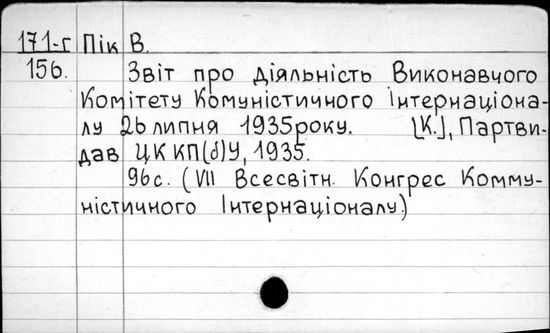 171-г Пік В.
156. Звіт про діяльність Виконавчого
Комітету Комуністичного Інтернаціона-
лу 26 липня 1935 року. [К.], Партви-
дав ЦК КП(б)У, 1935.
96с. (VII Всесвітн. Конгрес Комму-
ністичного Інтернаціоналу)